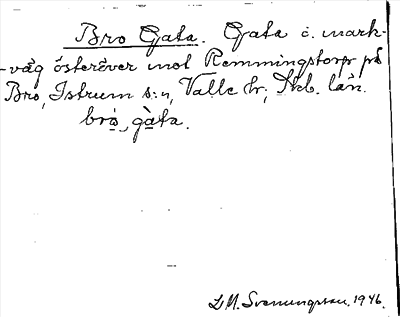 Bro Gata. Gata o. mark-
-väg österöver mot Remmingstorp på
Bro, Istrum s:n, Valle hr, Skb. län.
bro, gàta.
L M. Svenungsson, 1946.